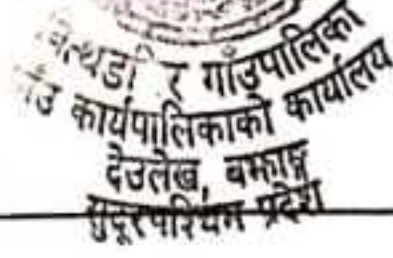 बित्थडचिर गाँउपालिका
गाँउ कार्यपालिकाको कार्यालय
देउलेख, बझाङ्ग
सुदूरपश्चिम प्रदेश